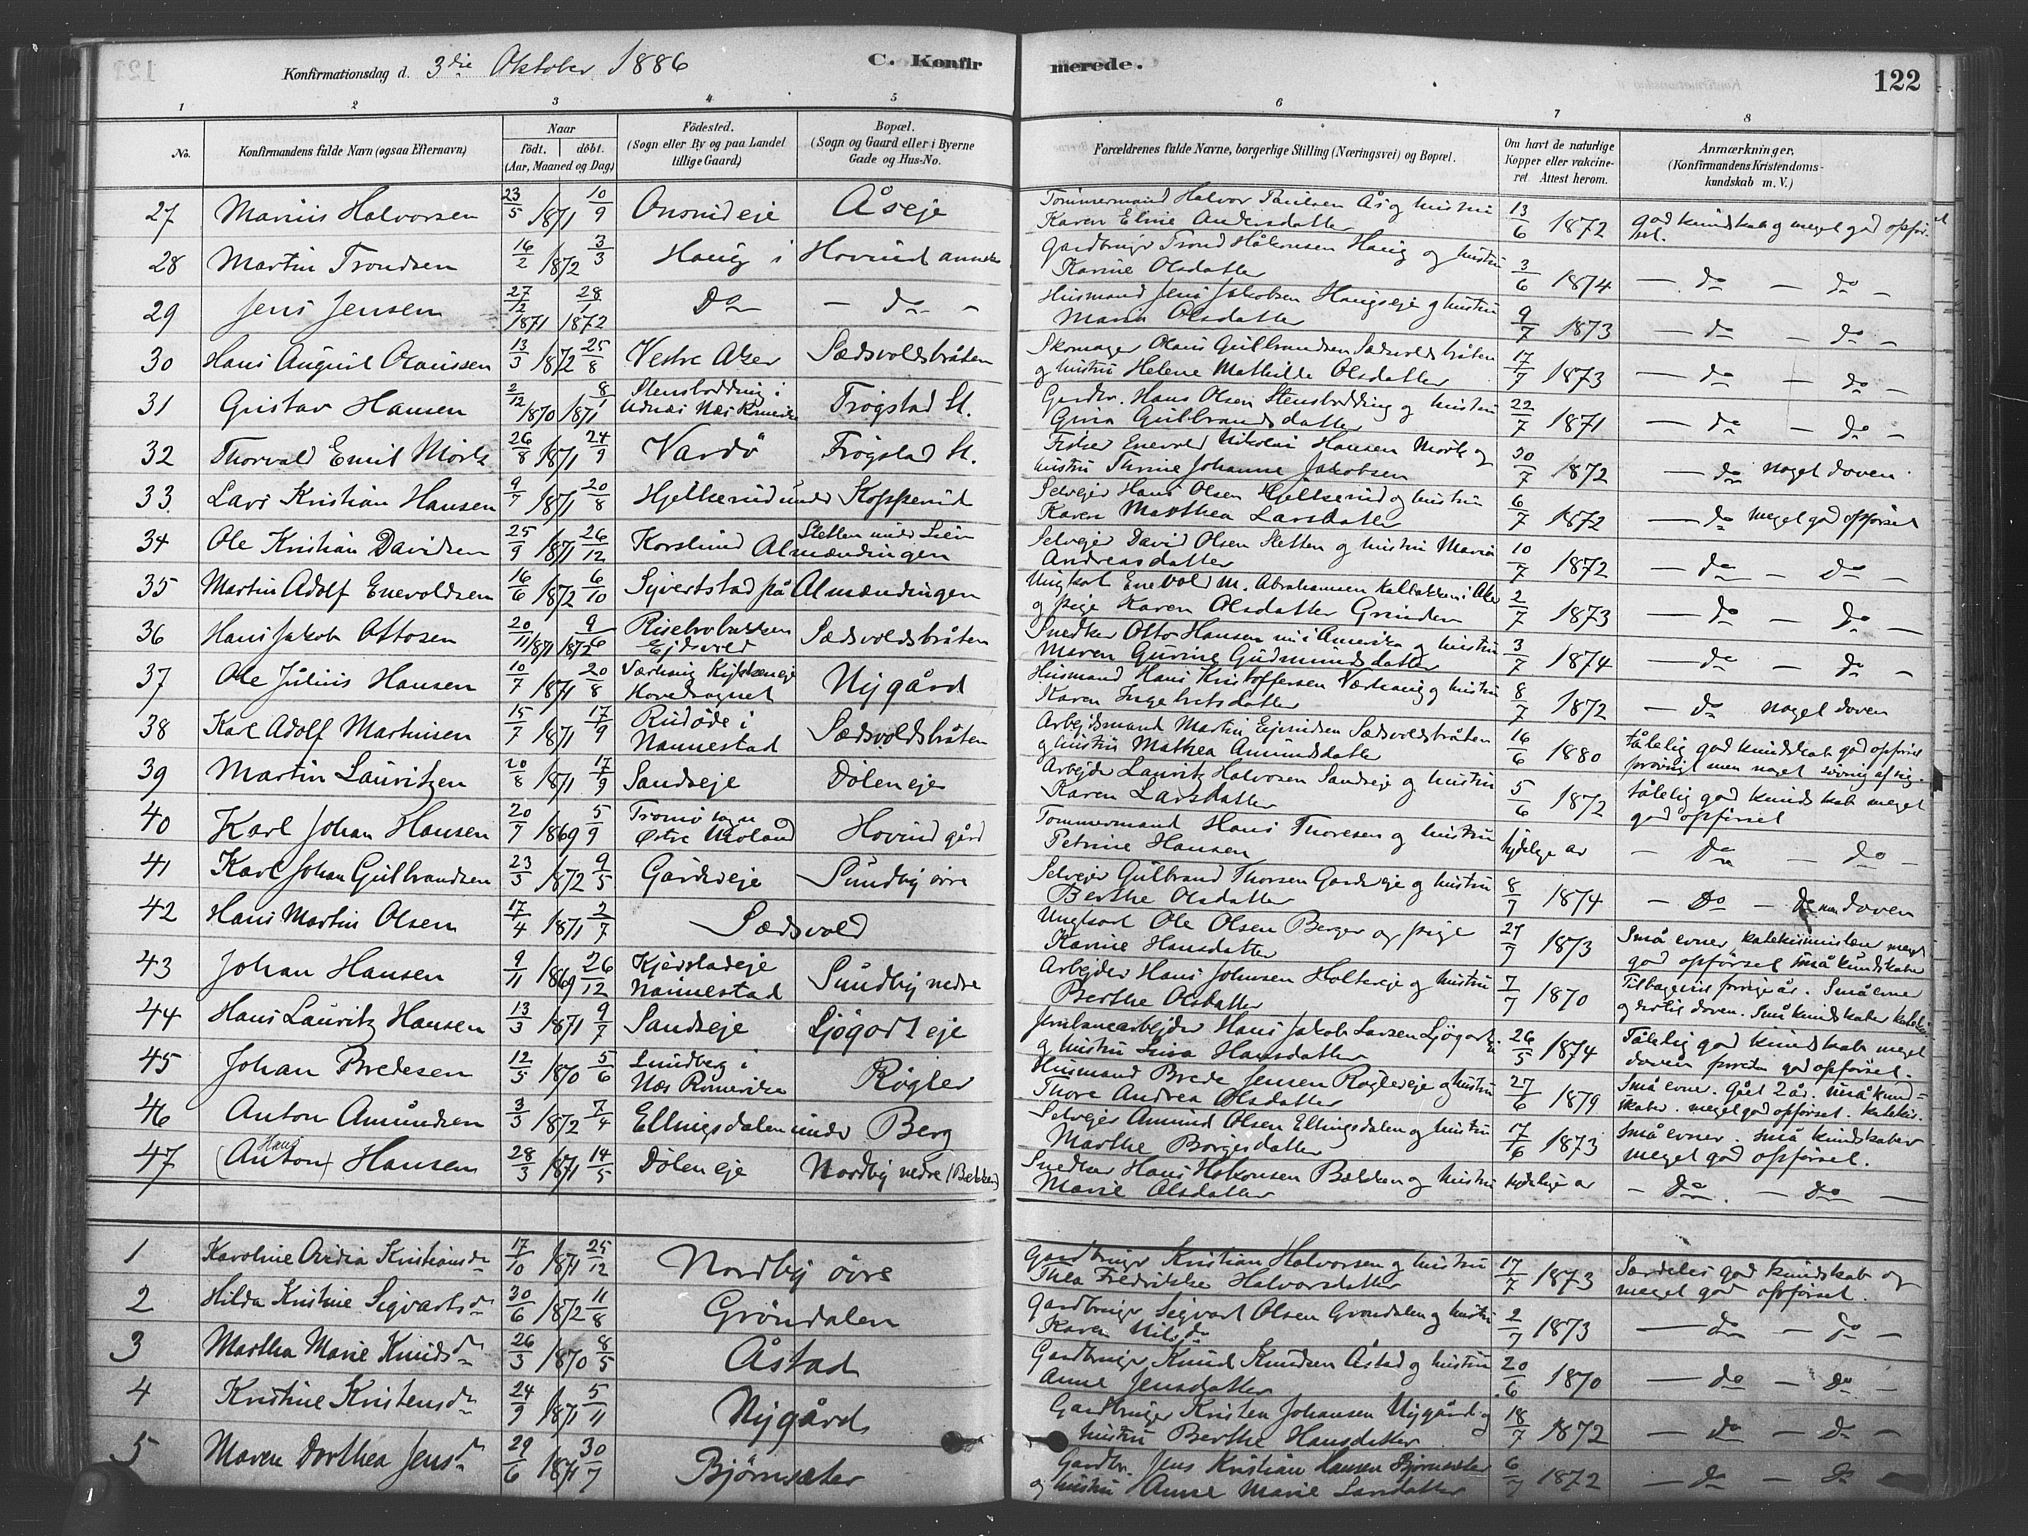 Konfirmationsdag d. 3die Oktober 1886 C. Konfirmerede. 122
1 2 3 4 5 6 7 8
No. Konfirmandens fulde Navn (ogsaa Efternavn) Naar født. døbt. (Aar, Maaned og Dag) Fødested. (Sogn eller By og paa Landet tillige Gaard) Bopæl. (Sogn og Gaard eller i Byerne Gade og Hus-No. Forældrenes fulde Navne, borgerlige Stilling (Næringsvei) og Bopæl. Om havt de naturlige Kopper eller vaccineret. Attest herom. Anmærkninger. (Konfirmandens Kristendomskundskab m. V.)
27 Marius Halvorsen 23/5 1871 10/9 Onsrudeje Åseje Tømmermand Halvor Paulsen Ås og hustru Karen Eline Andersdatter 13/6 1872 god kundskab og meget god opførsel.
28 Martin Trondsen 16/2 1872 3/3 Haug i Hovind anneks Gardbruger Trond Håkonsen Haug og hustru Karine Olsdatter 3/6 1874 — do — do —
29 Jens Jensen 27/12 1871 28/1 1872 Do — do — Husmand Jens Jakobsen Haugseje og hustru Maria Olsdatter 9/7 1873 — do do —
30 Hans August Olaussen 13/3 1872 25/8 Vestre Aker Sædsvoldsbråten Skomager Olaus Gulbrandsen Sædsvoldsbråten og hustru Helene Mathilde Olsdatter 17/7 1873 — do — do —
31 Gustav Hansen 2/12 1870 8/1 1871 Stensbodding i Udnæs Næs Romerike Frogstad St. Gardbr. Hans Olsen Stensbodding og hustru Gina Gulbrandsdatter 22/7 1871 — do — do —
32 Thorvald Emil Mörk 26/8 1871 24/9 Vardö Frogstad St. Fisker Enevold Nikolai Hansen Mörk og hustru Thrine Johanne Jakobsen 20/7 1872 — do noget doven
33. Lars Kristian Hansen 9/7 1871 20/8 Hjelkerud under Kopperud Selvejer Hans Olsen Hjelkerud og hustru Karen Marthea Larsdatter 6/7 1872 — do meget god opførsel
34 Ole Kristian Davidsen 25/9 1871 26/12 Korslund Almændingen Sletten under Lein Selvejer David Olsen Sletten og hustru Maria Andreasdatter 10/7 1872 — do — do —
35 Martin Adolf Enevoldsen 16/6 1872 6/10 Syvertstad på Almændingen Ungkarl Enevold M. Abrahamsen Kalbakken i Aker og pige Karen Olsdatter Grinder 2/7 1873 — do — do —
36 Hans Jakob Ottosen 20/11 1871 9/6 1872 Risebrobakken Ejdsvold Sædsvoldsbråten Snedker Otto Hansen nu i Amerika og hustru Maren Gurine Gudmundsdatter 3/7 1874 — do — do —
37 Ole Julius Hansen 10/7 1871 20/8 Hovedsognet Nygård Husmand Hans Kristoffersen og hustru Karen Ingebretsdatter 8/7 1872 — do noget doven
38 Karl Adolf Martinsen 15/7 1871 17/9 Rudøde i Nannestad Sædsvoldsbråten Arbejdsmand Martin Ejvindsen Sædsvoldsbråten og hustru Mathea Amundsdatter 16/6 1880 tålelig god kundskab god opførsel forøvrigt men noget
39 Martin Lauritzen 20/8 1871 17/9 Sandseje Døleneje Arbejder Lauritz Halvorsen Sandseje og hustru Karen Larsdatter 5/6 1872 tålelig god kundskab meget god opførsel
40 Karl Johan Hansen 20/7 1869 5/9 Tromö sogn Østre Moland Hovind gård Tømmermand Hans Thoresen og hustru Petrine Hansen tydelige ar — Do — do —
41 Karl Johan Gulbrandsen 23/3 1872 9/5 Gårdseje Sundby övre Selvejer Gulbrand Thorsen Gardseje og hustru Berthe Olsdatter 8/7 1874 — Do — do men doven
42 Hans Martin Olsen 17/4 1871 2/7 Sædsvold Ungkarl Ole Olsen Berger og pige Karine Hansdatter 29/7 1873 Små evner, katekismuslæser meget god opførsel små kundskaber
43 Johan Hansen 9/11 1869 26/12 Kjerstadeje Nannestad Sundby nedre Arbejder Hans Johnsen Holterseje og hustru Berthe Olsdatter 7/7 1870 Tilbagevist forrige år. Små evner og doven. Små kundskaber
44 Hans Lauritz Hansen 13/3 1871 9/7 Sandseje Ljögodteje Jernbanearbejder Hans Jakob Larsen Ljögodt og hustru Lina Hansdatter 26/5 1874 Tålelig god kundskab meget doven forøvr. god opførsel.
45 Johan Bredesen 12/5 1870 5/6 Lundberg i Næs Romerike Røgler Husmand Brede Jensen Røglereje og hustru Thore Andrea Olsdatter 27/6 1879 Små evner. Gået 2 år. små kundskaber. meget god opførsel. katekis.
46 Anton Amundsen 3/3 1872 7/4 Ellingsdalen under Berg Selvejer Amund Olsen Ellingsdalen og hustru Marthe Borgesdatter 17/6 1873 Små evner. små kundskaber meget god opførsel.
47 Hans (Anton) Hansen 28/3 1871 14/5 Døleneje Nordby nedre (Bekken) Snedker Hans Håkonsen Bækken og hustru Marie Olsdatter tydelige ar — Do — do —
1 Karoline Ovidia Kristiansdr 17/10 1871 25/12 Nordby övre Gardbruger Kristian Halvorsen og hustru Thea Fredrikke Halvorsdatter 17/7 1873 Særdeles god kundskab og meget god opførsel.
2 Hilda Kristine Sigvartsdr 30/6 1872 11/8 Gröndalen Gardbruger Sigvart Olsen Grøndalen og hustru Karen Nilsdr 2/7 1873 — do — do —
3 Martha Marie Knudsdr 26/3 1870 8/5 Åstad Gardbruger Knud Knudsen Åstad og hustru Anne Jensdatter 20/6 1870 — do — do —
4 Kristine Kristensdr 24/9 1871 5/11 Nygård Gardbruger Kristen Johansen Nygård og hustru Berthe Hansdatter 18/7 1872 — do — do
5 Maren Dorthea Jensdr 29/6 1871 30/7 Bjørnsæter Gardbr. Jens Kristian Hansen Bjørnsæter og hustru Anne Marie Larsdatter 6/7 1872 — do — do